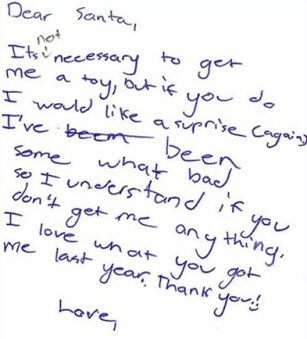 Dear Santa,
Its not necessary to get
me a toy, but if you do
I would like a suprise (again)
I've been been
some what bad
so I understand if you
don't get me anything.
I love what you got
me last year. Thank you!!
Love,